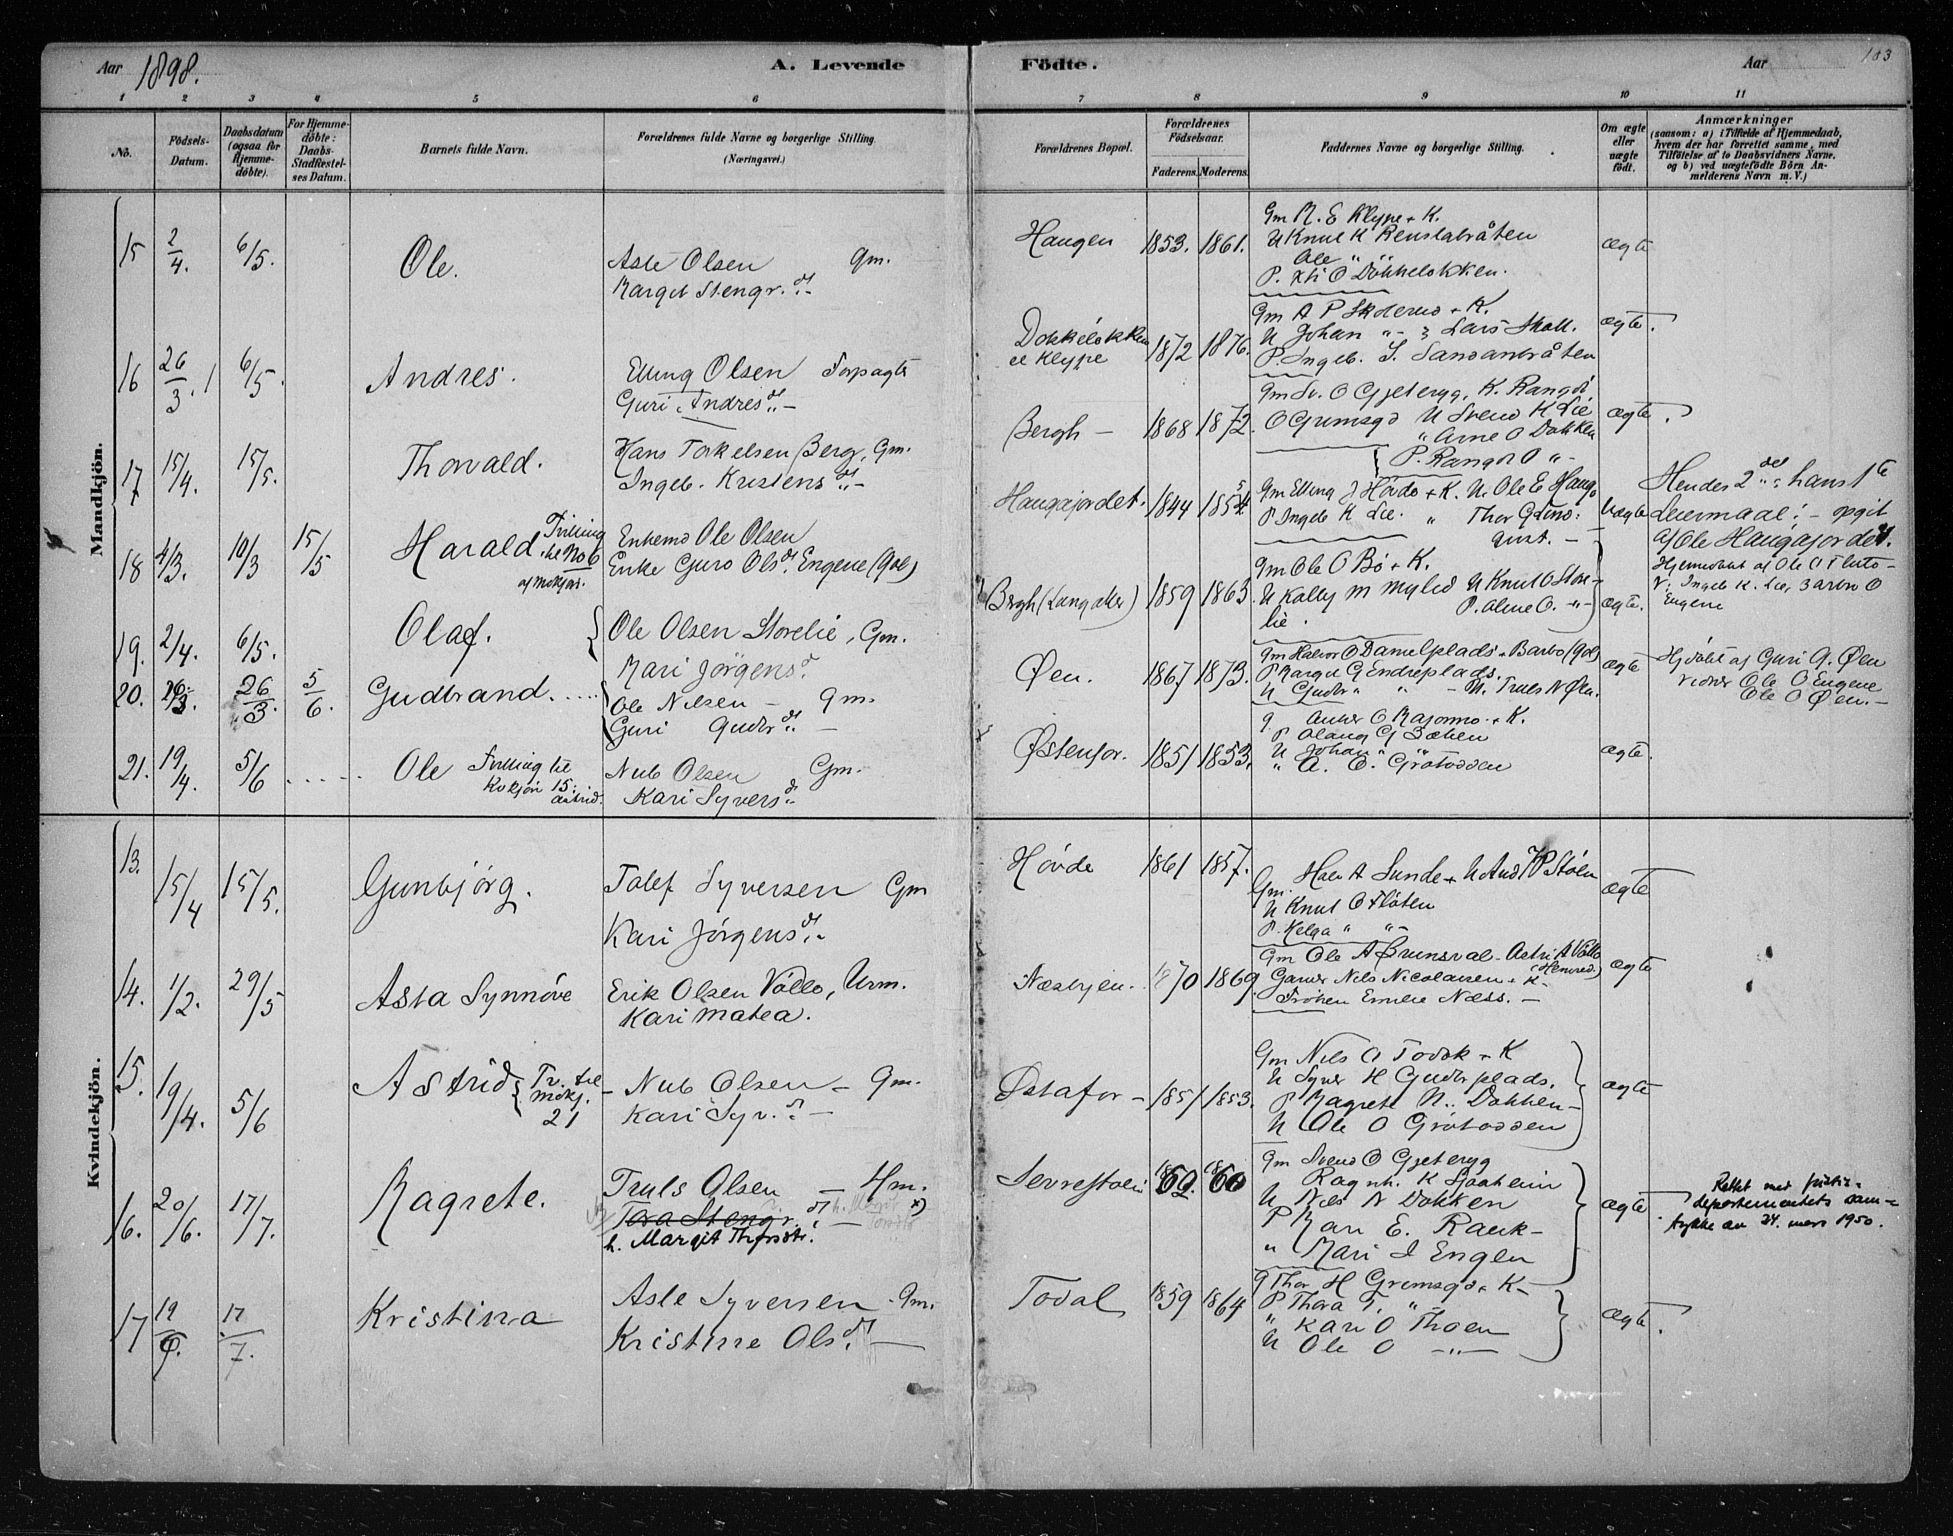 Aar 1898.
A. Levende
Födte.
Aar
103
1 2 3 4 5 6 7 8 9 10 11
No.
Födsels-
Datum.
Daabsdatum
(ogsaa for
Hjemme-
döbte).
For Hjemme-
döbte:
Daabs-
Stadfæstel-
ses Datum.
Barnets fulde Navn.
Forældrenes fulde Navne og borgerlige Stilling
(Næringsvei.)
Forældrenes Bopæl.
Forældrenes
Födselsaar.
Faderens. Moderens.
Faddernes Navne og borgerlige Stilling.
Om ægte
eller
uægte
födt.
Anmærkninger
(saasom: a) i Tilfælde af Hjemmedaab,
hvem der har forrettet samme, med
Tilföielse af to Daabsvidners Navne,
og b) ved uægtefödte Börn An-
melderens Navn m. V.)
Mandkjön.
15 2/4. 6/5. Ole.
Asle Olsen Gm.
Marget Stengr. d.
Haugen 1853. 1861.
Gm N. E Klype + K.
U Knut K Renslabråten
Ole " "
P. O Dökkelökken.
ægte
16 26/3. 6/5. Andres.
Elling Olsen Forpagter
Guri Andres d. -
Dokkelökken
1872 1876.
Gm A P Skolerud + K.
U Johan " - Lars Skoll.
P. Ingeb. S. Sandanbråten
ægte.
17 15/4. 15/5. Thorvald.
Hans Torkelsen Berg, Gm.
Ingeb. Kristens d. -
Bergh - 1868 1872.
Gm Sv. O Gjeteryg, K. Rangdi
O Grimsgd U Svend K Lie
" Arne O Dokken
P. Rangdi O " -
ægte.
18 4/3. 10/3 15/5 Harald
Tvilling
til No 6
af Mdkjøn.
Enkemd Ole Olsen
Enke Guro Ols d. Engene (Gol)
Haugajordet. 1844 1854
Gm Elling J Hövde + K. U. Ole E Haug
P Ingeb K Lie. " Thor G Lind:
qvist. -
Uægte
Hendes 2 det hans 1 te
Leiermaal: - opgit
af Ole Haugajordet.
Hjemdöbt af Ole A Fluto -
V. Ingeb K. Lie, Barbro O
Engene
19. 2/4. 6/5. Olaf.
Ole Olsen Storelie, Gm.
Mari Jörgens d
Bergh (Langaker) 1859 1863.
Gm Ole O Bö + K.
U Kalby M Myhld U Knut O Store-
P. Aline O. "
lie.
ægte.
20. 26/3. 26/3. 5/6. Gudbrand. .....
Ole Nilsen - Gm.
Guri Gudbr d. -
Øen. 1867 1873.
Gm Halvor O Danielplads + Barbo (Gol)
P Margit G Endreplads.
U Gudbr " " - U. Truls N Øen.
ægte
Hjdöbt af Guri G. Øen
vidner Ole O Engene
Ole O Øen. -
21. 19/4. 5/6 ..... Ole
Tvilling til
Kvkjön 15:
Astrid.
Nub Olsen Gm.
Kari Syvers d.
Østenfor. 1851 1853.
U Johan " "
" A. E. Grötodden
ægte.
Kvindekjön.
13. 15/4 15/5. Gunbjörg.
Tolef Syversen Gm
Kari Jörgens d.
Hövde 1861 1857.
Gm. Halv A Sunde + U And P Stölen
U Knut O Flöten
P. Helga " " -
ægte
14. 1/2. 29/5 Asta Synnöve
Erik Olsen Vollo, Urm.
Kari Matea.
Næsbyen. 1870 1869.
Gm Ole A Brunsval - Astri A Vollo
(Hemsed.)
Garver Nils Nicolaisen + K -
Fröken Emilie Næss. -
ægte
15. 19/4. 5/6 Astrid
Tv. til
Mdkj.
21
- Nub Olsen - Gm.
Kari Syv. d. -
Østafor - 1851 1853.
Gm Nils O Todsk + K
U Syver H Gudbrplads.
P Magrete N. Dokken -
U Ole O Grötodden
ægte
16. 20/6. 17/7. Magrete.
Truls Olsen - Hm.
Tora Stengr. d. -
h. Margit Thfrsdtr.
Sevrestölen 1862. 1860
Gm Svend O Gjeteryg
Ragnh. K Sjaaheim
U Nils N Dokken
P Mari E. Rauk -
" Mari I Engen
ægte
Rettet med justis-
departementets sam-
tykke av 24. mars 1950.
17 19/6. 17/7. Kristina
Asle Syversen - Gm.
Kristine Ols d. -
Todal 1859 1864
G Thor H Grimsgd + K -
P Thora T. " -
" Kari O Thoen
U Ole O - " -
ægte.